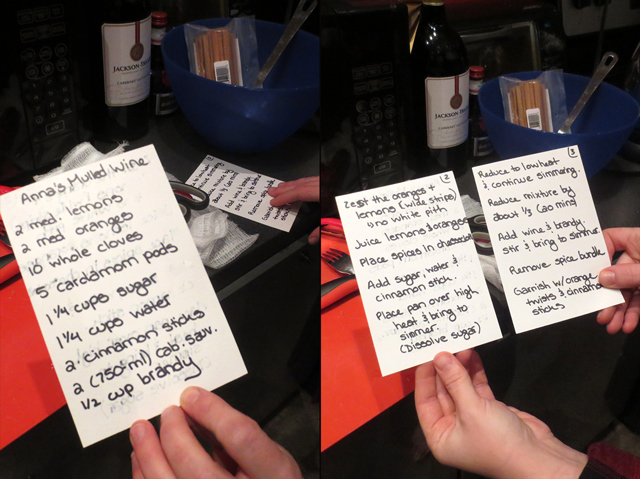 JACKSON
Anna's Mulled Wine
2 med. lemons
2 med oranges
10 whole cloves
5 cardamom pods
1 1/4 cups sugar
1 1/4 cups water
2 cinnamon sticks
2 (750-ml) cab. sauv.
1/2 cup brandy
JACKSON
2
Zest the oranges +
lemons (wide strips)
no white pith
Juice lemons & oranges
Place spices in cheesecloth
Add sugar, water &
cinnamon stick.
Place pan over high
heat & bring to
simmer.
(Dissolve sugar)
3
Reduce to low heat
& continue simmering.
Reduce mixture by
about 1/3 (20 mins)
Add wine & brandy.
stir & bring to simmer
Remove spice bundle
Garnish w/ orange
twists & cinnamon
sticks